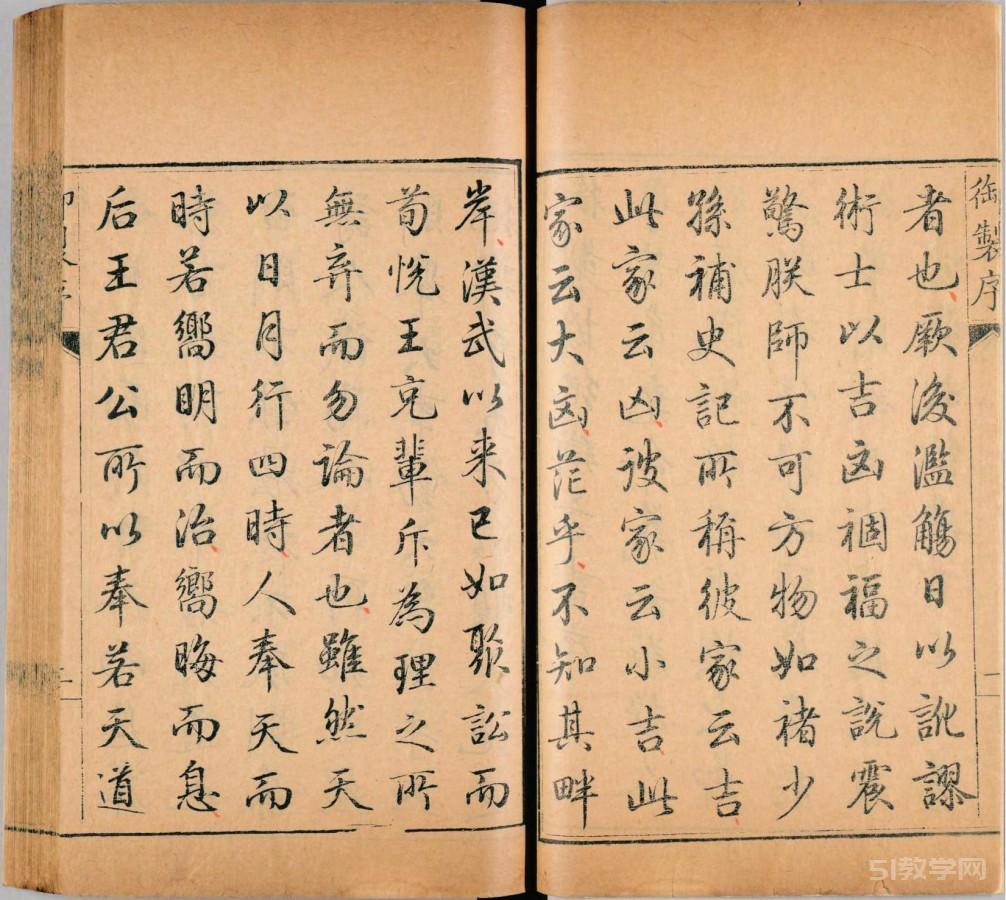 御製序
二
者也厥後濫觴日以訛謬
術士以吉凶禍福之說震
驚朕師不可方物如褚少
孫補史記所稱彼家云吉
此家云凶彼家云小吉此
家云大凶茫乎不知其畔
岸漢武以来已如聚訟而
荀悅王充輩斥為理之所
無弃而勿論者也雖然天
以日月行四時人奉天而
時若嚮明而治嚮晦而息
后王君公所以奉若天道
51教学网